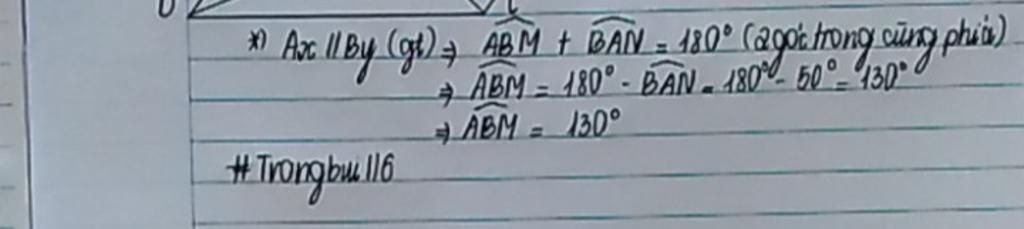 *) Ax // By (gt) ⇒ \widehat{ABM} + \widehat{BAN} = 180° (2 góc trong cùng phía)
⇒ \widehat{ABM} = 180° - \widehat{BAN} = 180° - 50° = 130°
⇒ \widehat{ABM} = 130°
# Trongbui116